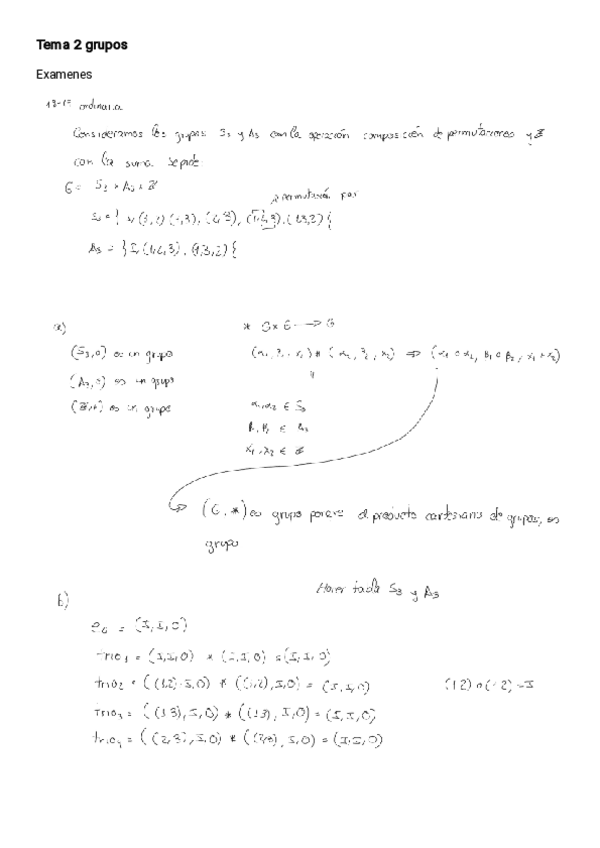 Tema 2 grupos
Examenes
ordinaria
Consideramos los grupos S₃ y A₃ con la operación composición de permutaciones y Z
con la suma. Se pide:
G = S₃ × A₃ × Z
permutación par
A₃ = { I, (1,2,3), (1,3,2) {
a)
* G × G → G
(S₃,o) es un grupo
(A₃,o) es un grupo
(Z,+) es un grupo
α₁,α₂ ∈ S₃
x₁,x₂ ∈ Z
(G,*) es grupo porque el producto cartesiano de grupos, es
grupo
Hacer tabla S₃ y A₃
b)
e₆ = (I,I,0)
trio₁ = (I,I,0) * (I,I,0) = (I,I,0)
trio₂ = ((1,2),I,0) * ((1,2),I,0) = (I,I,0) (1 2) o (1 2) = I
trio₃ = ((1 3),I,0) * ((1 3),I,0) = (I,I,0)
trio₄ = ((2,3),I,0) * ((2,3),I,0) = (I,I,0)